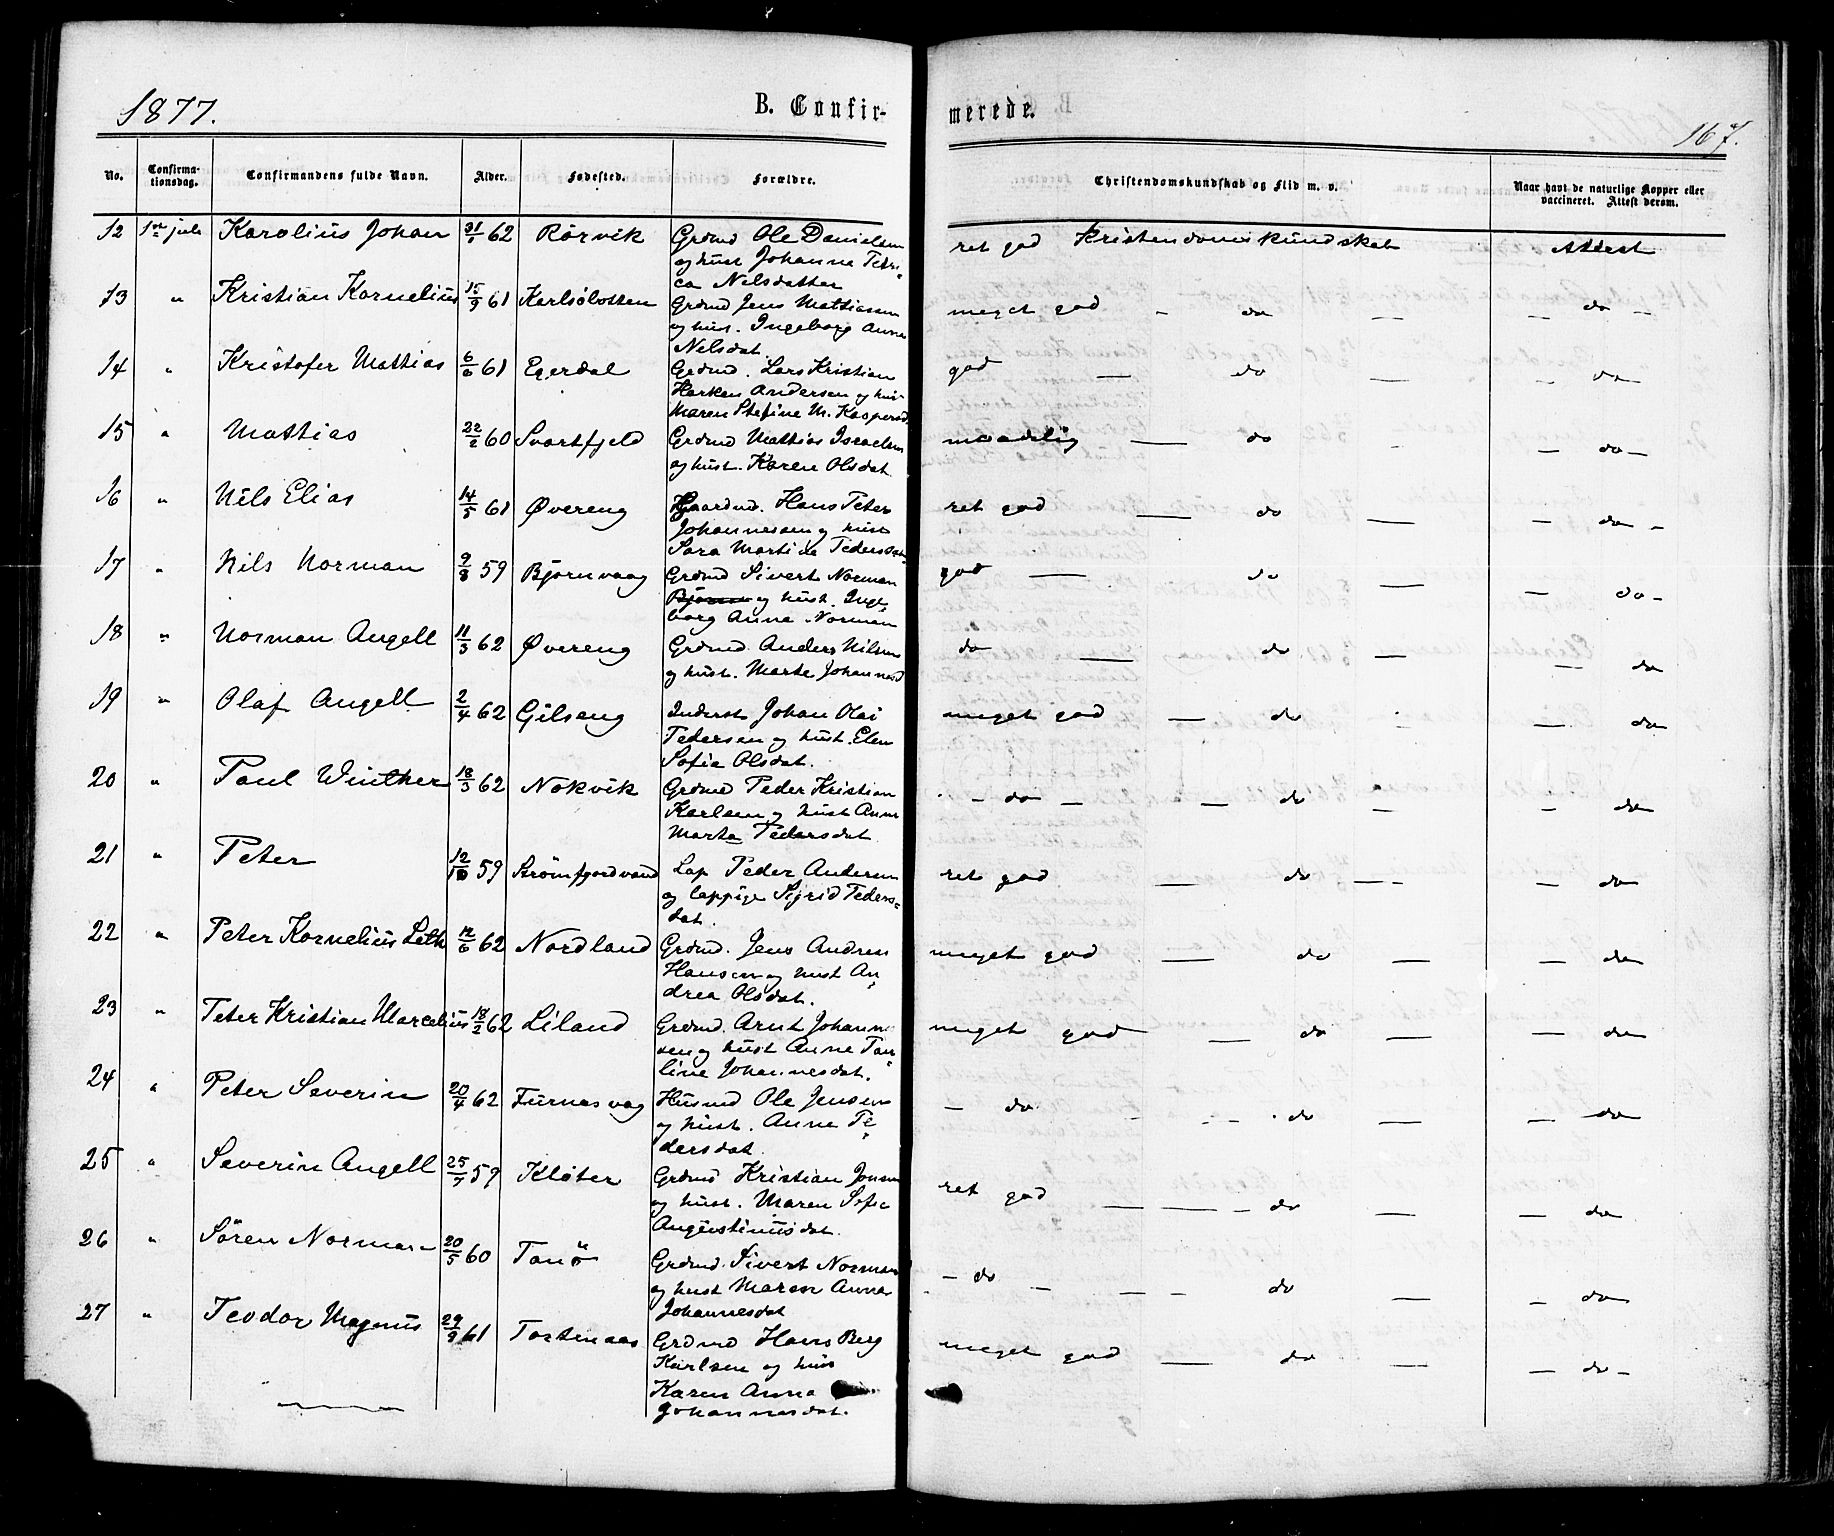 1877. B. Confir- merede. 167.
No. Confirma-tionsdag. Confirmandens fulde Navn. Alder. Fødested. Forældre. Christendomskundskab og Flid m. v. Naar havt de naturlige Kopper eller vaccineret. Attest derom.
12 1ste juli Karolius Johan 31/1 62 Rörvik Grdmd Ole Danielsen ret god Kristendomskundskab Attest
og hust Johanna Petri-
ca Nelsdatter
13 " Kristian Kornelius 15/9 61 Karlsöbotten Grdmd Jens Mattiassen meget god - do — — do -
og hus. Ingeborg Anna
Nelsdat.
14 " Kristofer Mattias 6/6 61 Egerdal Grdmd. Lars Kristian god — do — - do -
Harken Andersen og hus-
Maren Stefine M. Kaspersd
15 " Mattias 22/2 60 Svartfjeld Grdmd Mattias Israelsen maadelig — do — do -
og hust. Karen Olsdat.
16 " Nils Elias 14/5 61 Øvereng Gaardmd. Hans Peter ret god — do — — do -
Johannesen og hust
Sara Martina Pedersdat
17 " Nils Norman 9/8 59 Bjørnvaag Grdmd Sivert Norman god — do — — do -
og hust. Inge-
borg Anna Norman
18 " Norman Angell 11/3 62 Øvereng Grdmd. Anders Nilsen do — do — — do
og hust. Marte Johannesd
19 " Olaf Angell 2/4 62 Gilseng Inderst Johan Olai meget god — do - — do
Pedersen og hust. Elen
Sofia Olsdat.
20 " Paul Winther 18/3 62 Nokvik Grdmd Peder Kristian - do - — do — — do
Karlsen og hust Anna
Marta Pedersdat
21 " Peter 12/10 59 Strömfjordvand Lap Peder Andersen ret god — do — - — do
og lappige Sigrid Peders-
dat.
22 " Peter Kornelius Leth 12/6 62 Nordland Grdmd. Jens Andreas meget god — do — — do
Hansen og hust An-
drea Olsdat.
23 " Peter Kristian Marcelius 18/2 62 Liland Grdmd. Arnt Johanne- meget god — do — — do
sen og hust Anna Pau-
line Johannesdat.
24 " Peter Severin 20/4 62 Furnesvag Husmd Ole Jensen - do - - do — — do
og hust. Anna Pe-
dersdat
25 " Severin Angell 25/7 59 Kløter Grdmd Kristian Jonsen ret god — — - do — — do
og hust. Maren Sofie
Augustinusdat.
26 " Sören Norman 20/5 60 Tanö Grdmd. Sivert Norman - do - — - do — - do
og hust Maren Anna
Johannesdat
27 " Teodor Magnus 29/9 61 Tortenaas Grdmd Hans Berg meget god — do — — do -
Karlsen og hus
Karen Anna
Johannesdat.